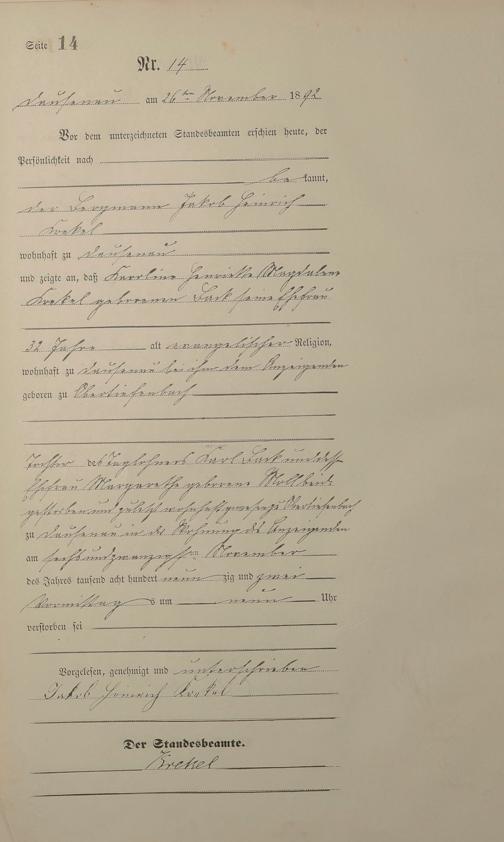 Seite 14
Nr. 14
Dausenau am 26ten November 1892
Vor dem unterzeichneten Standesbeamten erschien heute, der
Persönlichkeit nach
be kannt,
der Bergmann Jakob Heinrich
Krekel
wohnhaft zu Dausenau
und zeigte an, daß Karoline Henriette Magdalene
Krekel geborenen Back seine Ehefrau
32 Jahre alt evangelischer Religion,
wohnhaft zu Dausenau bei ihm dem Anzeigenden
geboren zu Obertiefenbach
Tochter des Taglöhners Karl Back und dess
Ehefrau Margarethe geborene beide
gestorben und zuletzt wohnhaft gewesen zu Obertiefenbach
zu Dausenau in der Wohnung des Anzeigenden
am sechsundzwanzigsten November
des Jahres tausend acht hundert neun zig und zwei
Vormittag s um neun Uhr
verstorben sei
Vorgelesen, genehmigt und unterschrieben
Jakob Heinrich Krekel
Der Standesbeamte.
Krekel